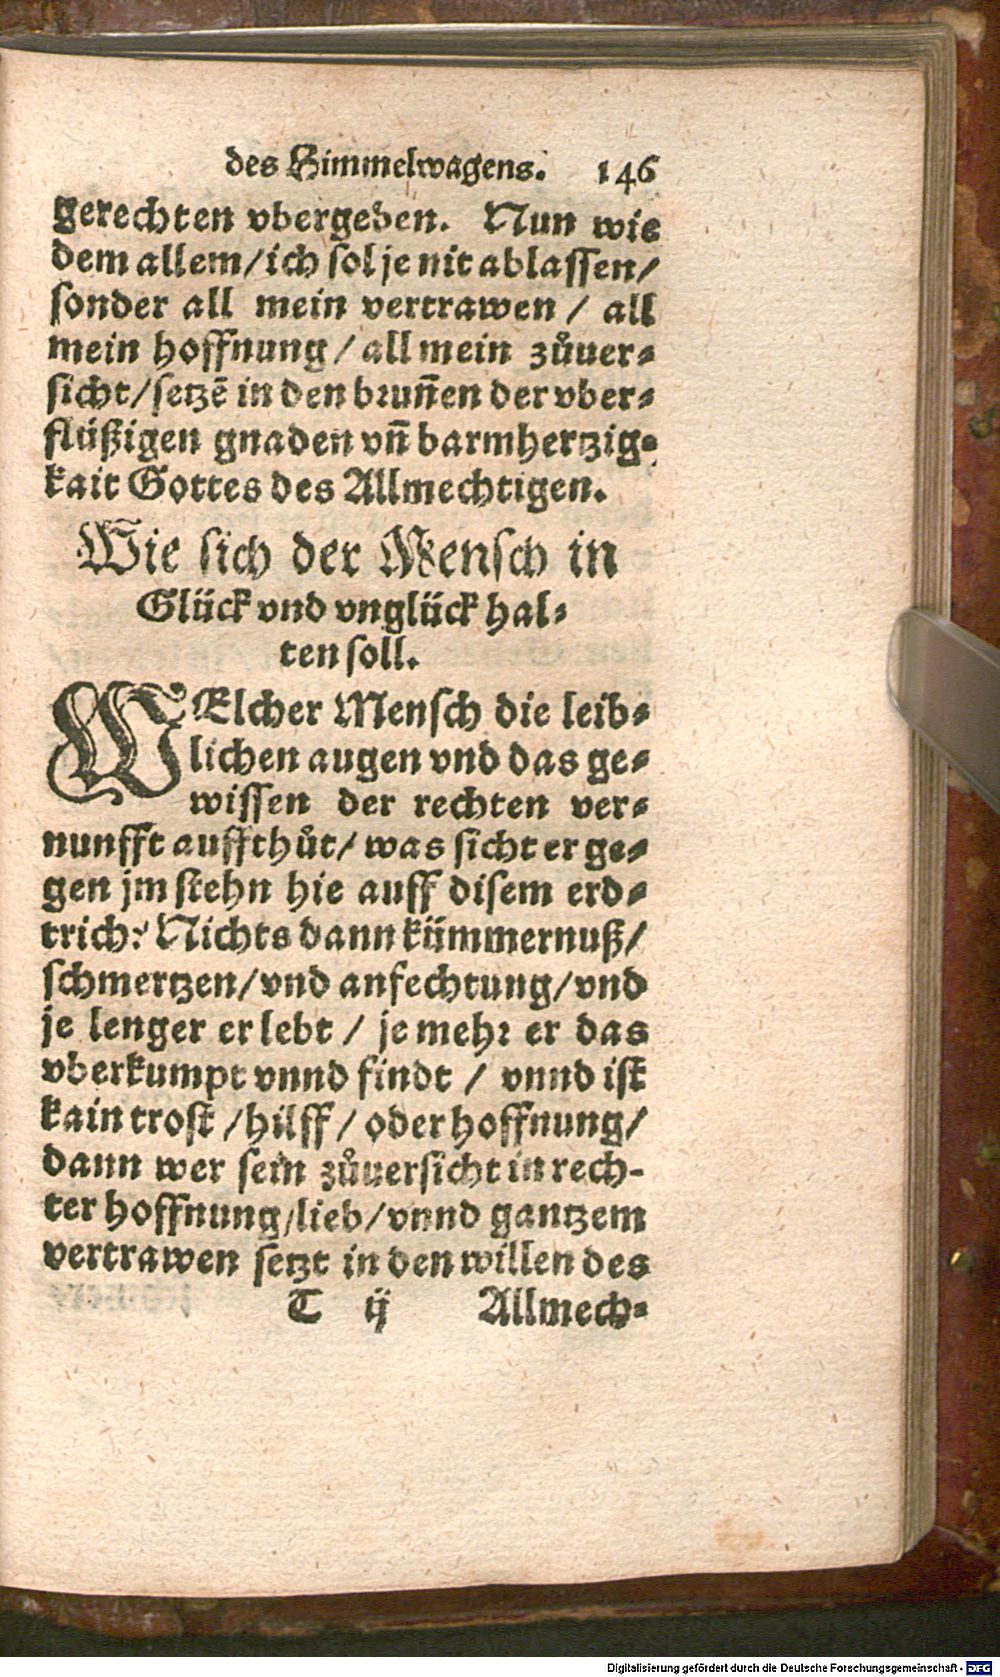 des Himmelwagens. 146
gerechten vbergeben. Nun wie
dem allem/ich sol je nit ablassen/
sonder all mein vertrawen / all
mein hoffnung / all mein zůuer⸗
sicht/setzē in den brun̄en der vber⸗
flüßigen gnaden vn̄ barmhertzig⸗
kait Gottes des Allmechtigen.
Wie sich der Mensch in
Glück vnd vnglück hal⸗
ten soll.
WElcher Mensch die leib⸗
lichen augen vnd das ge⸗
wissen der rechten ver⸗
nunfft auffthůt/ was sicht er ge⸗
gen jm stehn hie auff disem erd⸗
trich? Nichts dann kümmernuß/
schmertzen/vnd anfechtung/vnd
je lenger er lebt / je mehr er das
vberkumpt vnnd findt / vnnd ist
kain trost /hilff/ oder hoffnung/
dann wer sein zůuersicht in rech-
ter hoffnung/lieb/vnnd gantzem
vertrawen setzt in den willen des
T ij Allmech⸗
Digitalisierung gefördert durch die Deutsche Forschungsgemeinschaft - DFG